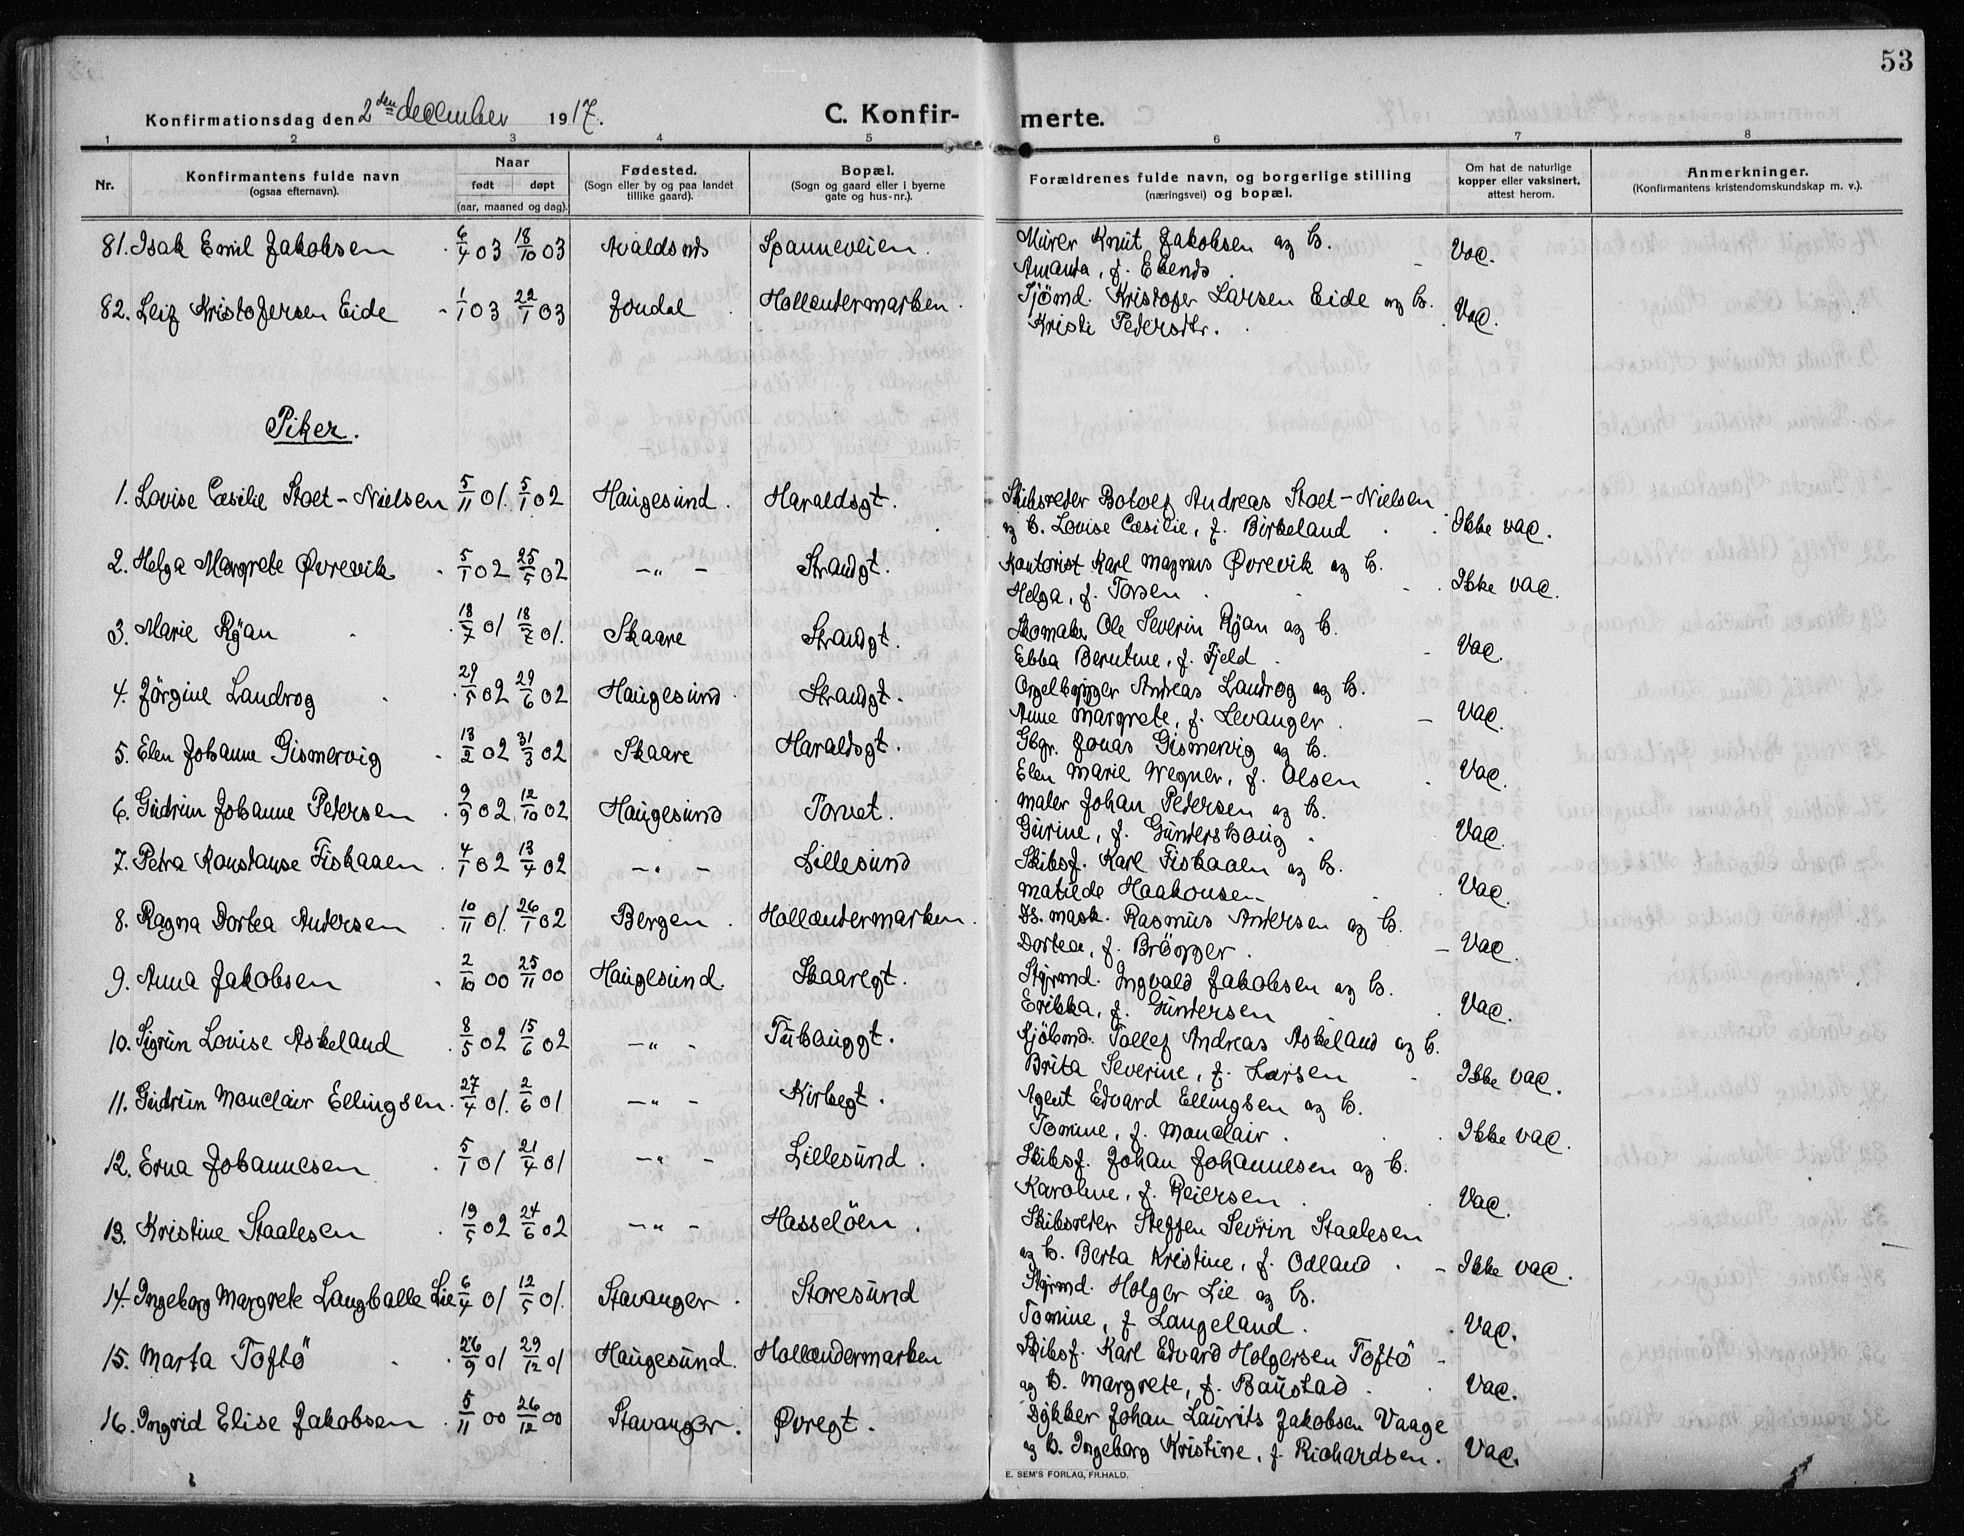 53
Konfirmationsdag den 2den december 1917. C. Konfirmerte.
1 2 3 4 5 6 7 8
Nr. Konfirmantens fulde navn (ogsaa efternavn). Naar født døpt (aar, maaned og dag). Fødested. (Sogn eller by og paa landet tillike gaard). Bopæl. (Sogn og gaard eller i byerne gate og hus-nr.). Forældrenes fulde navn, og borgerlige stilling (næringsvei) og bopæl. Om hat de naturlige kopper eller vaksinert, attest herom. Anmerkninger. (Konfirmantens kristendomskundskap m. v.).
81. Isak Emil Jakobsen 6/4 03 18/10 03 Avaldsnds Spanneveien. Murer Knut Jakobsen og h. Vac.
Amanda, f. Ebends.
82. Leif Kristofersen Eide 1/1 03 22/1 03 Jondal Hollendermarken. Sjömd. Kristofer Larsen Eide og h. Vac.
Kristi Pedersdtr.
Piker.
1. Lovise Cæsilie Stoet-Nielsen 5/11 01. 5/1 02 Haugesund. Haraldsgt. Skibsreder Botolf Andreas Stoet-Nielsen
og h. Lovise Cæsilie, f. Birkeland Ikke vac.
2. Helga Margrete Øvrevik 5/1 02 25/5 02 -"- Strandgt. Kontorist Karl Magnus Øvrevik og h.
Helga, f. Torsen Ikke vac.
3. Marie Ryan 18/7 01 18/7 01. Skaare Strandgt. Skomaker Ole Severin Ryan og h.
Ebba Berntine, f. Fjeld Vac.
4. Jörgine Landrog 29/5 02 29/6 02 Haugesund. Strandgt. Orgelbygger Andreas Landrog og h.
Anne Margrete, f. Levanger. Vac.
5. Elen Johanne Gismervig 13/2 02 31/3 02 Skaare Haraldsgt. Gbgr. Jonas Gismervig og h.
Elen Marie Wegner, f. Olsen Vac.
6. Gudrun Johanne Petersen 9/9 02 12/10 02 Haugesund Torvet. Maler Johan Petersen og h.
Gurine, f. Gundershaug Vac.
7. Petra Konstanse Fiskaaen 4/1 02 13/4 02 -"- Lillesund Skibsf. Karl Fiskaaen og h.
Matilde Haakonsen Vac.
8. Ragna Dortea Andersen 10/11 01. 26/1 02 Bergen. Hollendermarken. Ds. mask. Rasmus Andersen og h.
Dortea, f. Brögger. Vac.
9. Anna Jakobsen 2/10 00 25/11 00 Haugesund. Skaaregt. Styrmd. Ingvald Jakobsen og h.
Erikka, f. Gundersen Vac.
10. Sigrun Lovise Askeland 8/5 02 15/6 02 -"- Tuhauggt. Sjömd. Tollef Andreas Askeland og h.
Brita Severine, f. Larsen Ikke vac.
11. Gudrun Monclair Ellingsen. 27/4 01. 2/6 01 -"- Kirkegt. Agent Edvard Ellingsen og h.
Tomine, f. Monclair. Ikke vac.
12. Erna Johannesen 5/1 01 21/4 01 -"- Lillesund. Skibsf. Johan Johannesen og h.
Karoline, f. Reiersen Vac.
13. Kristine Staalesen 19/5 02 24/6 02 -"- Hasselöen. Skibsreder Steffen Sevrin Staalesen
og h. Berta Kristine, f. Odland Ikke vac.
14. Ingeborg Margrete Langballe Lie 6/4 01 12/5 01. Stavanger. Storesund Styrmd. Holger Lie og h.
Tomine, f. Langeland. Vac.
15. Marta Toftö 26/9 01 29/12 01 Haugesund. Hollendermarken Skibsf. Karl Edvard Holgersen Toftö
og h. Margrete, f. Baustad Vac.
16. Ingrid Elise Jakobsen 5/11 00 26/12 00 Stavanger. Øvregt. Dykker Johan Laurits Jakobsen Vaage
og h. Ingeborg Kristine, f. Richardsen. Vac.
E. SEM'S FORLAG, FR.HALD.